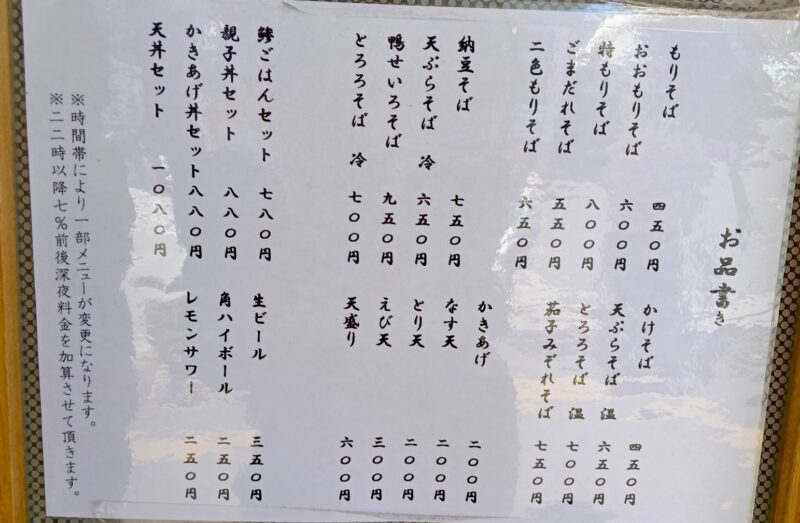 お品書き
もりそば 四五〇円
おおもりそば 六〇〇円
特もりそば 八〇〇円
ごまだれそば 五五〇円
二色もりそば 六五〇円
納豆そば 七五〇円
天ぷらそば 冷 六五〇円
鴨せいろそば 九五〇円
とろろそば 冷 七〇〇円
鯵ごはんセット 七八〇円
親子丼セット 八八〇円
かきあげ丼セット八八〇円
天丼セット 一〇八〇円
かけそば 四五〇円
天ぷらそば 温 六五〇円
とろろそば 温 七〇〇円
茄子みぞれそば 七五〇円
かきあげ 二〇〇円
なす天 二〇〇円
とり天 二〇〇円
えび天 三〇〇円
天盛り 六〇〇円
生ビール 三五〇円
角ハイボール 二五〇円
レモンサワー 二五〇円
※時間帯により一部メニューが変更になります。
※二二時以降七％前後深夜料金を加算させて頂きます。